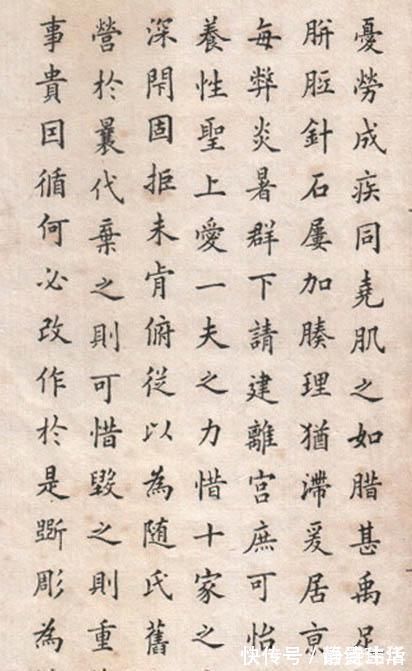 憂勞成疾同堯肌之如腊甚禹足
胼胝針石屢加腠理猶滯爰居京
每弊炎暑群下請建離宮庶可怡
養性聖上愛一夫之力惜十家之
深閇固拒未肯俯從以為随氏舊
營於曩代棄之則可惜毀之則重
事貴囙循何必改作於是斲彫為
快传号/